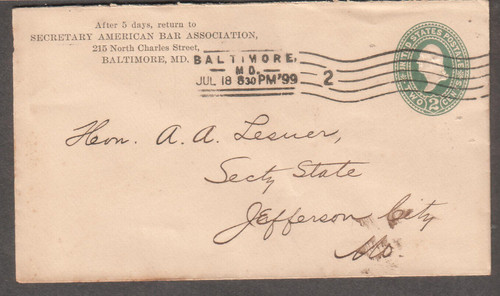 After 5 days, return to
SECRETARY AMERICAN BAR ASSOCIATION,
215 North Charles Street,
BALTIMORE, MD.
BALTIMORE,
MD.
JUL 18 830PM '99
2
UNITED STATES POSTAGE
TWO 2 CENTS
Hon. A. A. Lesuer,
Secty State
Jefferson City
Mo.